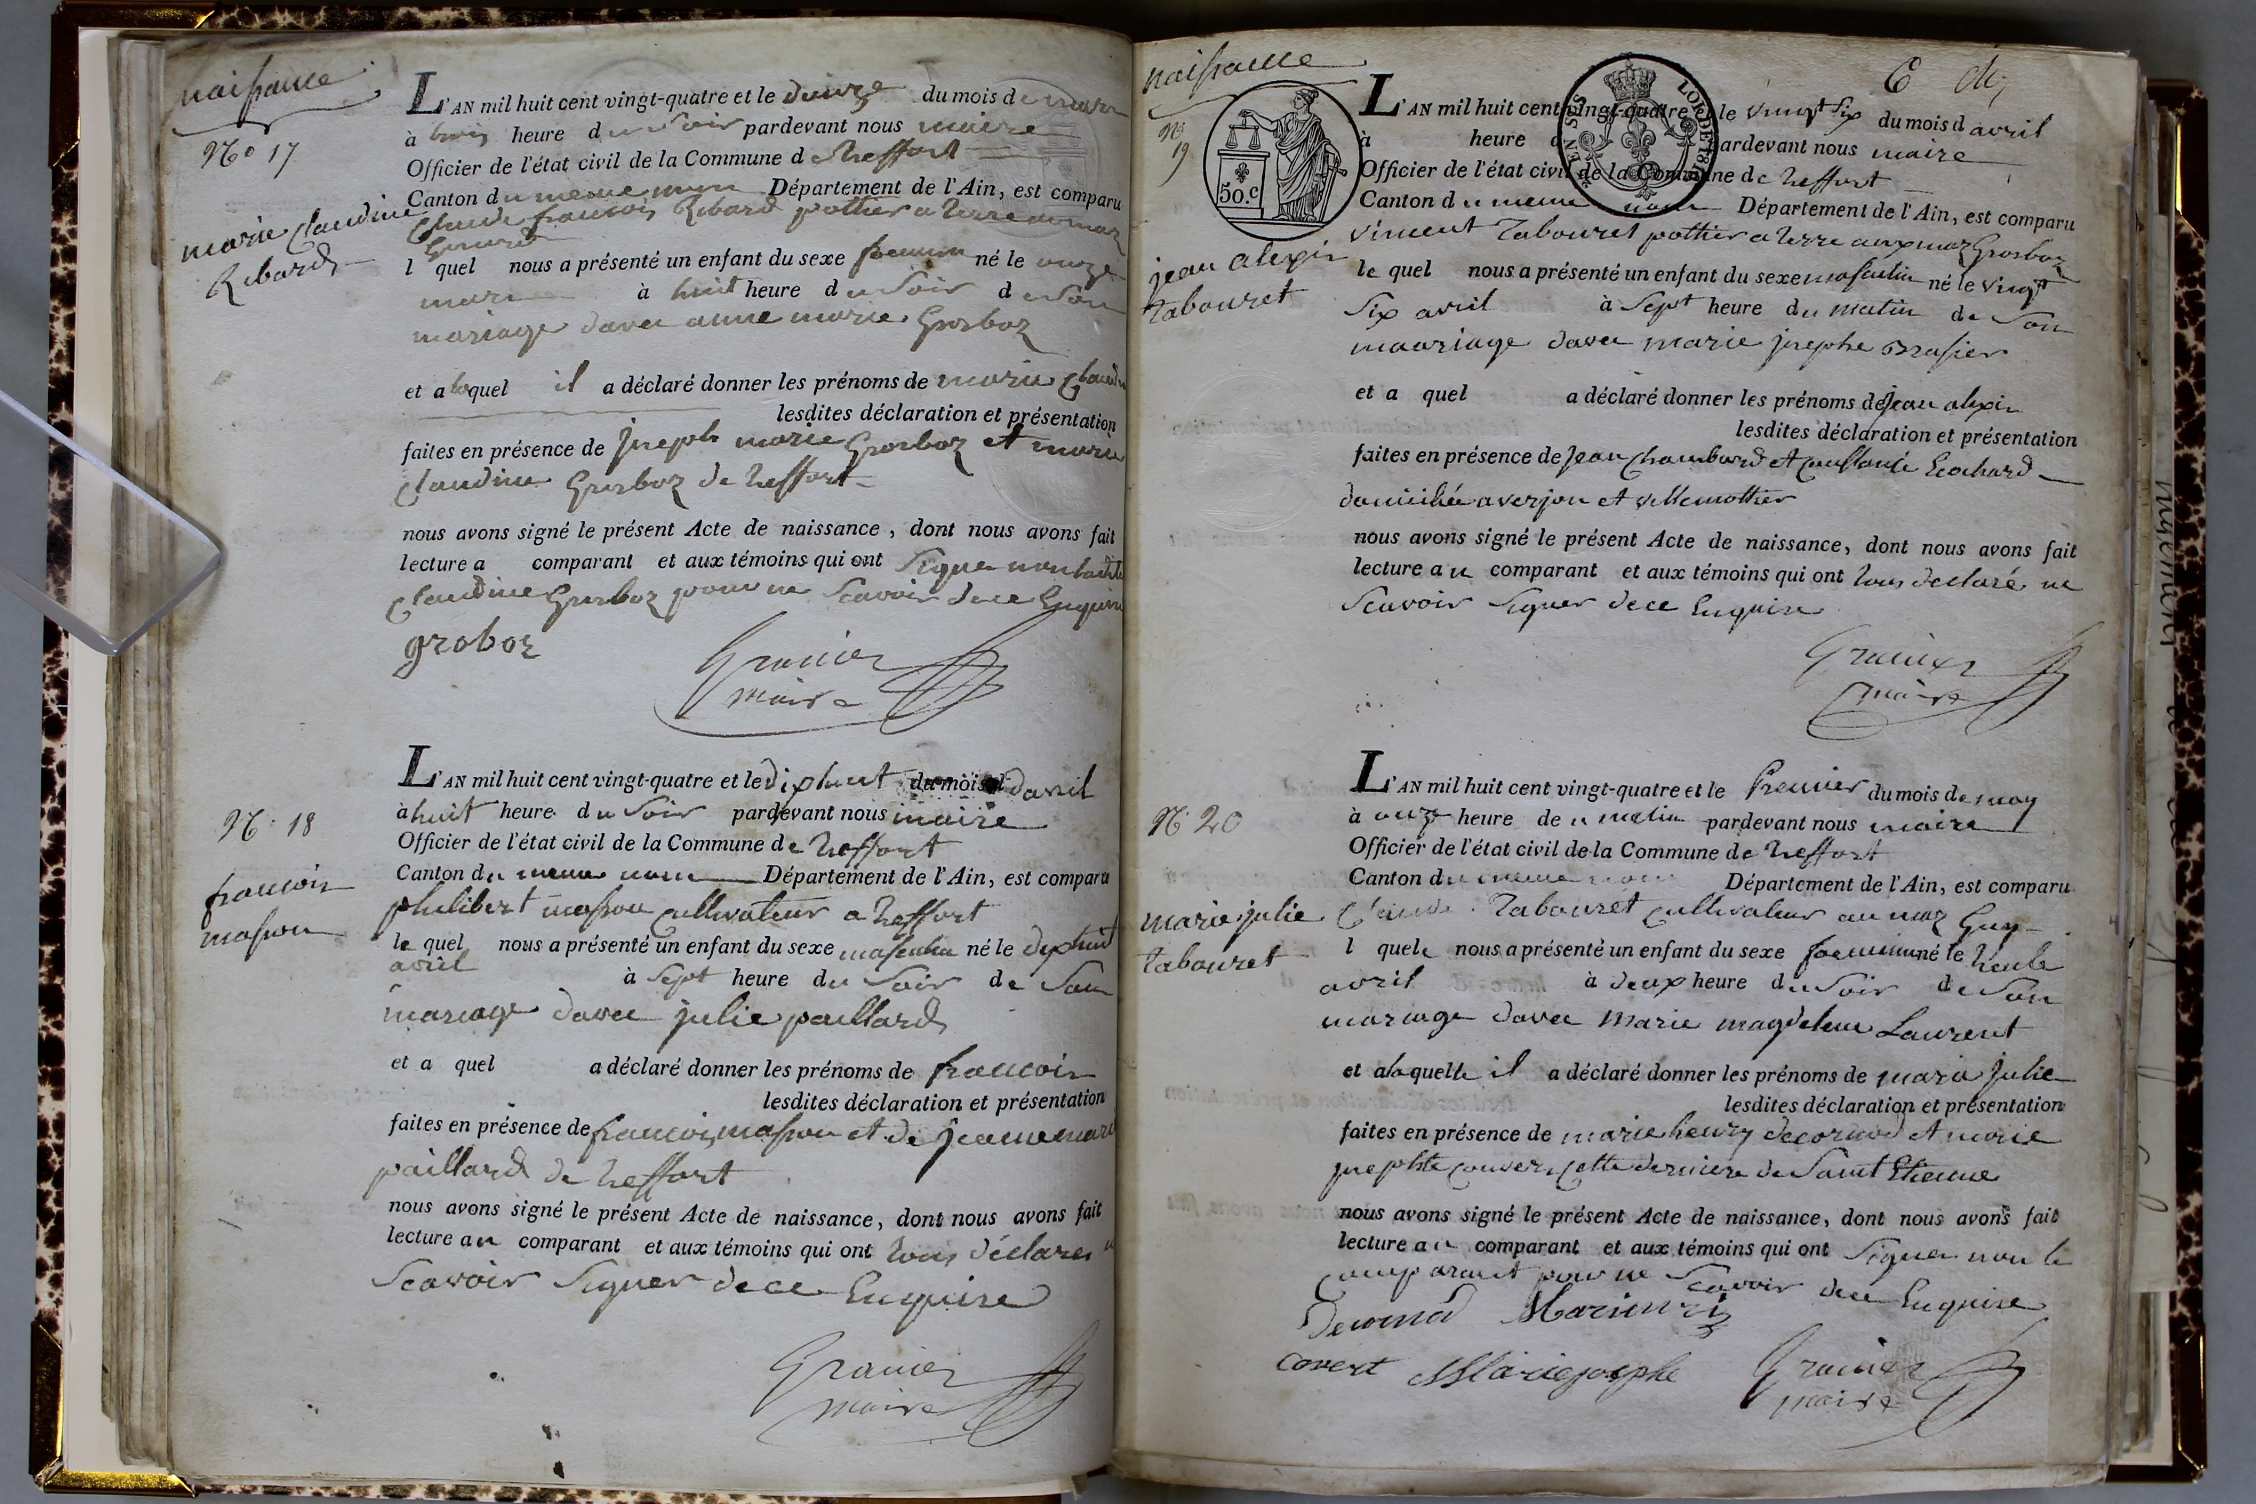 naissance
No 17
marie claudine
Ribard
L'AN mil huit cent vingt-quatre et le douze du mois de mars
à trois heure du Soir pardevant nous maire
Officier de l'état civil de la Commune de Treffort
Canton du meme nom Département de l'Ain, est comparu
Claude francois Ribard pottier a terre au maz
l quel nous a présenté un enfant du sexe foeminin né le onze
mars à huit heure du Soir de son
mariage davec anne marie Grosboz
et a laquel il a déclaré donner les prénoms de marie Claudine
lesdites déclaration et présentation
faites en présence de joseph marie Grosboz et marie
Claudine Grosboz de treffort
nous avons signé le présent Acte de naissance, dont nous avons fait
lecture a comparant et aux témoins qui ont Signer non ladite
Claudine Grosboz pour ne Scavoir de ce Enquire
groboz
Granier
maire
N. 18
francois
masson
L'AN mil huit cent vingt-quatre et le dixhuit du mois d davril
à huit heure du Soir pardevant nous maire
Officier de l'état civil de la Commune de treffort
Canton du meme nom Département de l'Ain, est comparu
philibert masson Cultivateur a treffort
le quel nous a présenté un enfant du sexe masculin né le dixhuit
avril à Sept heure du Soir de Son
mariage davec julie paillard
et a quel a déclaré donner les prénoms de francois
lesdites déclaration et présentation
faites en présence de francois masson et de jeanne marie
paillard de treffort
nous avons signé le présent Acte de naissance, dont nous avons fait
lecture au comparant et aux témoins qui ont tous déclarer n
Scavoir Signer de ce Enquire
Granier
maire
naissance
No
19
jean alexis
tabouret
50.c
EN SUS
LOI DE 1816
L'AN mil huit cent vingt-quatre et le vingt Six du mois d avril
à heure d pardevant nous maire
Officier de l'état civil de la Commune de treffort
Canton du meme nom Département de l'Ain, est comparu
vincent Tabouret pottier a terre aux maz Grosboz
le quel nous a présenté un enfant du sexe masculin né le vingt
Six avril à Sept heure du matin de Son
maariage davec marie josephe Brasier
et a quel a déclaré donner les prénoms de jean alexis
lesdites déclaration et présentation
faites en présence de Jean Chambard et Constance Ecochard
domiciliés a verjon et villemottier
nous avons signé le présent Acte de naissance, dont nous avons fait
lecture au comparant et aux témoins qui ont tous declaré ne
Scavoir Signer de ce Enquire
Granier
maire
N. 20
marie julie
tabouret
L'AN mil huit cent vingt-quatre et le Premier du mois de may
à onze heure de u matin pardevant nous maire
Officier de l'état civil de la Commune de treffort
Canton du meme nom Département de l'Ain, est comparu
Claude Tabouret Cultivateur au maz Guy
l quele nous a présenté un enfant du sexe foeminin né le trente
avril à deux heure du Soir de Son
mariage davec marie magdeleine Laurent
et a laquelle il a déclaré donner les prénoms de marie julie
lesdites déclaration et présentation
faites en présence de marie henry decornod et marie
josephte Couvert Cette derniere de Saint Etienne
nous avons signé le présent Acte de naissance, dont nous avons fait
lecture au comparant et aux témoins qui ont Signer non le
comparant pour ne Scavoir de ce Enquire
covert Mariejosphe
Granier
maire